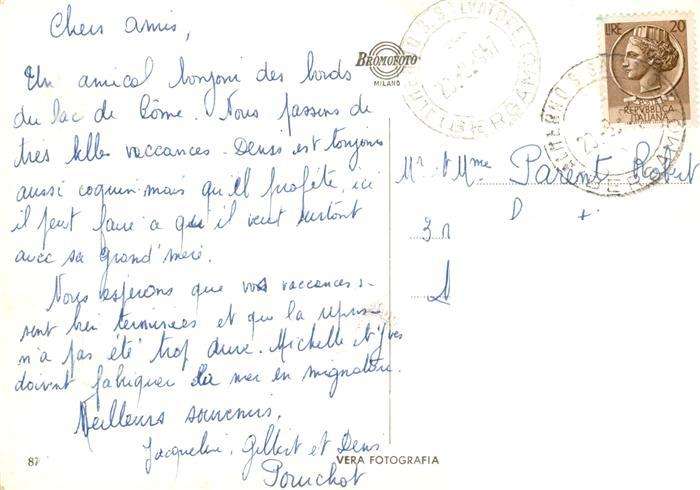 Chers amis,
Un amical bonjour des bords
du lac de Côme. Nous passons de
très belles vaccances. Denis est toujours
aussi coquin mais qu'il profite, ici
il peut faire ce qu'il veut surtout
avec sa grand'mère.
Nous espérons que vos vaccances se
sont bien terminées et que la reprise
n'a pas été trop dure. Michelle et Yves
doivent fabriquer la mer en mignature.
Meilleurs souvenirs.
Jacqueline, Gilbert et Denis
Ponchot
87
VERA FOTOGRAFIA
BROMOFOTO
MILANO
LIRE 20
REPVBBLICA
ITALIANA
BERGAMO
Mr et Mme Parent Robert